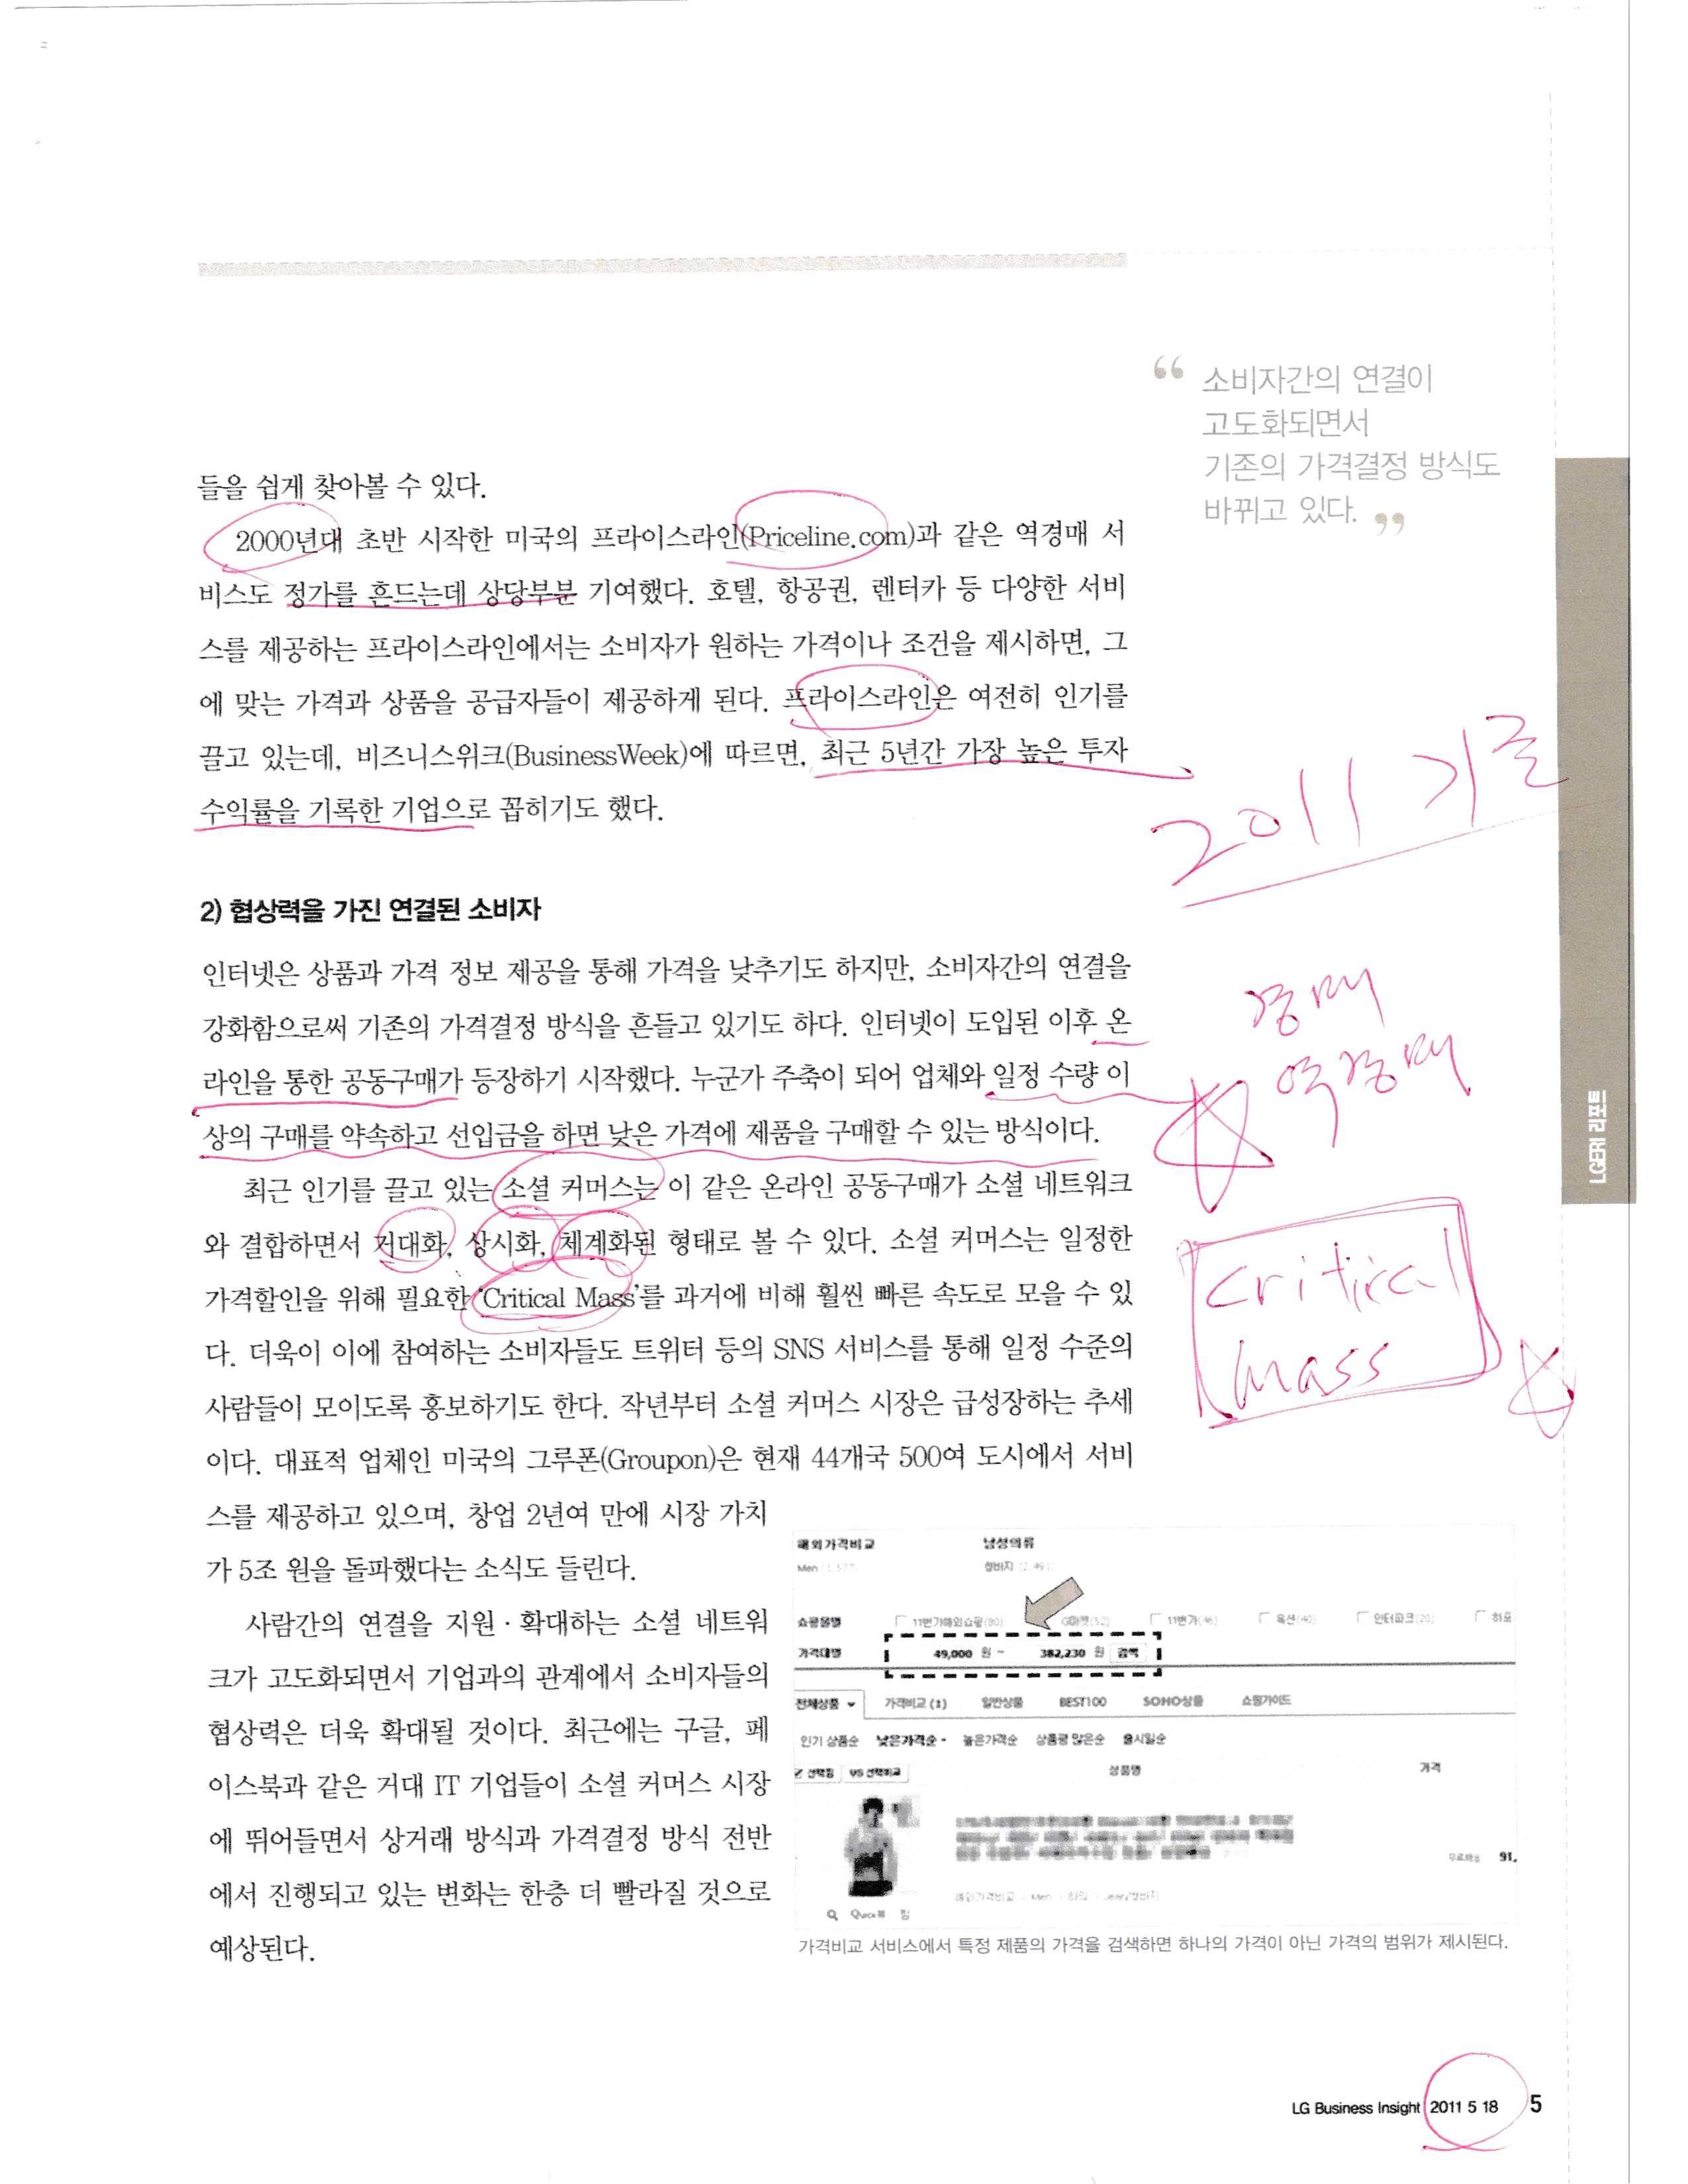 “ 소비자간의 연결이
고도화되면서
기존의 가격결정 방식도
바뀌고 있다. ”
들을 쉽게 찾아볼 수 있다.
2000년대 초반 시작한 미국의 프라이스라인(Priceline.com)과 같은 역경매 서
비스도 정가를 흔드는데 상당부분 기여했다. 호텔, 항공권, 렌터카 등 다양한 서비
스를 제공하는 프라이스라인에서는 소비자가 원하는 가격이나 조건을 제시하면, 그
에 맞는 가격과 상품을 공급자들이 제공하게 된다. 프라이스라인은 여전히 인기를
끌고 있는데, 비즈니스위크(BusinessWeek)에 따르면, 최근 5년간 가장 높은 투자
수익률을 기록한 기업으로 꼽히기도 했다.
2011 기준
2) 협상력을 가진 연결된 소비자
인터넷은 상품과 가격 정보 제공을 통해 가격을 낮추기도 하지만, 소비자간의 연결을
강화함으로써 기존의 가격결정 방식을 흔들고 있기도 하다. 인터넷이 도입된 이후 온
라인을 통한 공동구매가 등장하기 시작했다. 누군가 주축이 되어 업체와 일정 수량 이
상의 구매를 약속하고 선입금을 하면 낮은 가격에 제품을 구매할 수 있는 방식이다.
경매
역경매
최근 인기를 끌고 있는 소셜 커머스는 이 같은 온라인 공동구매가 소셜 네트워크
와 결합하면서 거대화, 상시화, 체계화된 형태로 볼 수 있다. 소셜 커머스는 일정한
가격할인을 위해 필요한 ‘Critical Mass’를 과거에 비해 훨씬 빠른 속도로 모을 수 있
다. 더욱이 이에 참여하는 소비자들도 트위터 등의 SNS 서비스를 통해 일정 수준의
사람들이 모이도록 홍보하기도 한다. 작년부터 소셜 커머스 시장은 급성장하는 추세
이다. 대표적 업체인 미국의 그루폰(Groupon)은 현재 44개국 500여 도시에서 서비
스를 제공하고 있으며, 창업 2년여 만에 시장 가치
가 5조 원을 돌파했다는 소식도 들린다.
Critical
mass
사람간의 연결을 지원 · 확대하는 소셜 네트워
크가 고도화되면서 기업과의 관계에서 소비자들의
협상력은 더욱 확대될 것이다. 최근에는 구글, 페
이스북과 같은 거대 IT 기업들이 소셜 커머스 시장
에 뛰어들면서 상거래 방식과 가격결정 방식 전반
에서 진행되고 있는 변화는 한층 더 빨라질 것으로
예상된다.
해외가격비교 남성의류
Men 청바지
쇼핑몰별 11번가해외쇼핑(80) G마켓(52) 11번가(46) 옥션(40) 인터파크(20)
가격대별 49,000 원 ~ 382,230 원 검색
전체상품 가격비교 (1) 일반상품 BEST100 SOHO상품 쇼핑가이드
인기 상품순 낮은가격순 높은가격순 상품평 많은순 출시일순
선택찜 VS 선택비교 상품명 가격
무료배송 91,
해외가격비교 Men 하의
Quick뷰 찜
가격비교 서비스에서 특정 제품의 가격을 검색하면 하나의 가격이 아닌 가격의 범위가 제시된다.
LGERI 리포트
LG Business Insight 2011 5 18 5